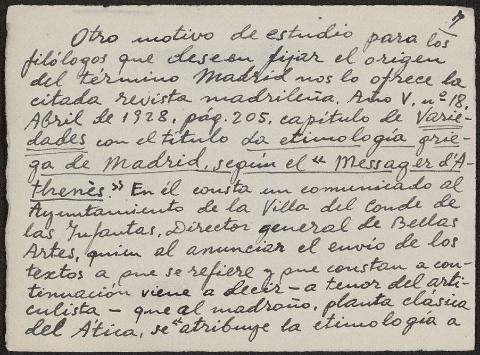 7
Otro motivo de estudio para los
filólogos que deseen fijar el origen
del término Madrid nos lo ofrece la
citada revista madrileña. Año V. nº 18.
Abril de 1928. pág. 205. capítulo de Varie-
dades con el título La etimología grie-
ga de Madrid, según el "Messager d'A-
thenès." En él consta un comunicado al
Ayuntamiento de la Villa del Conde de
las Infantas, Director general de Bellas
Artes, quien al anunciar el envío de los
textos a que se refiere y que constan a con-
tinuación viene a decir - a tenor del arti-
culista - que al madroño, planta clásica
del Ática, se "atribuye la etimología a